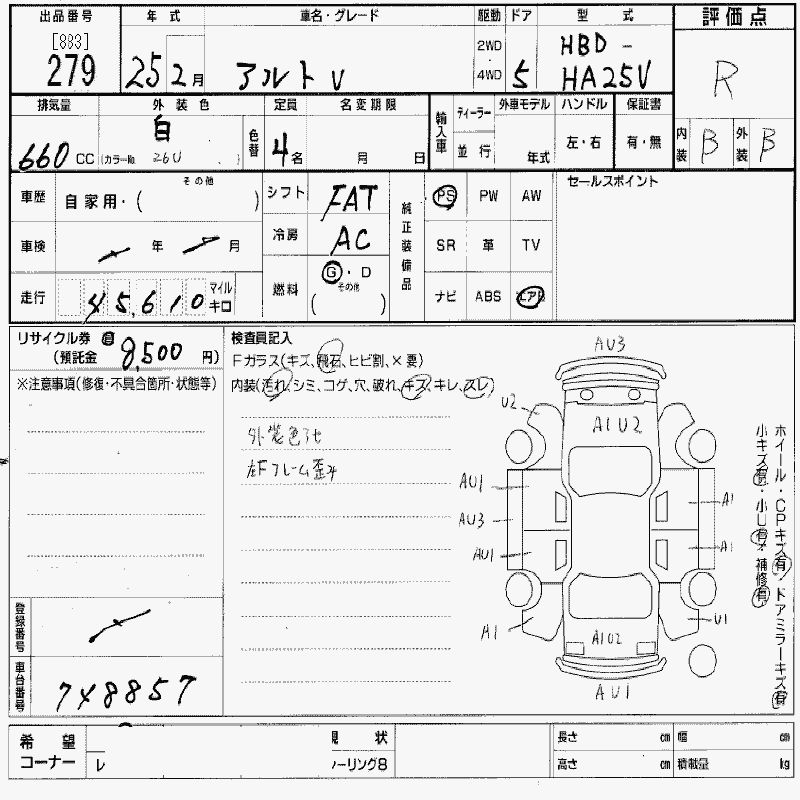 出品番号 年式 車名・グレード 駆動 ドア 型式 評価点
[883]
279
25 2月
アルト V
2WD
・
4WD
5
HBD -
HA25V
R
排気量 外装色 定員 名変期限 輸入車 ディーラー 外車モデル ハンドル 保証書
660 CC
白
(カラーNo. 26U )
色替
4名
月 日
並行
年式
左・右
有・無
内装 B 外装 B
車歴 自家用・( その他 )
シフト FAT
純正装備品
PS PW AW
セールスポイント
車検 年 月
冷房 AC
SR 革 TV
走行 45,610 マイル キロ
燃料 G・D
その他
( )
ナビ ABS エアB
リサイクル券 有
(預託金 8,500 円)
※注意事項(修復・不具合箇所・状態等)
検査員記入
Fガラス(キズ、飛石、ヒビ割、×要)
内装(汚れ、シミ、コゲ、穴、破れ、キズ、キレ、スレ)
外装色アセ
左Fフレーム歪み
AU3
U2
A1U2
AU1
A1
AU3
AU1
A1
A1
U1
A1U2
AU1
ホイール・CPキズ有/ドアミラーキズ有
小キズ有・小U有/補修有
登録番号
車台番号
748857
希望
コーナー
レ
現状
ーリング8
長さ cm 幅 cm
高さ cm 積載量 kg